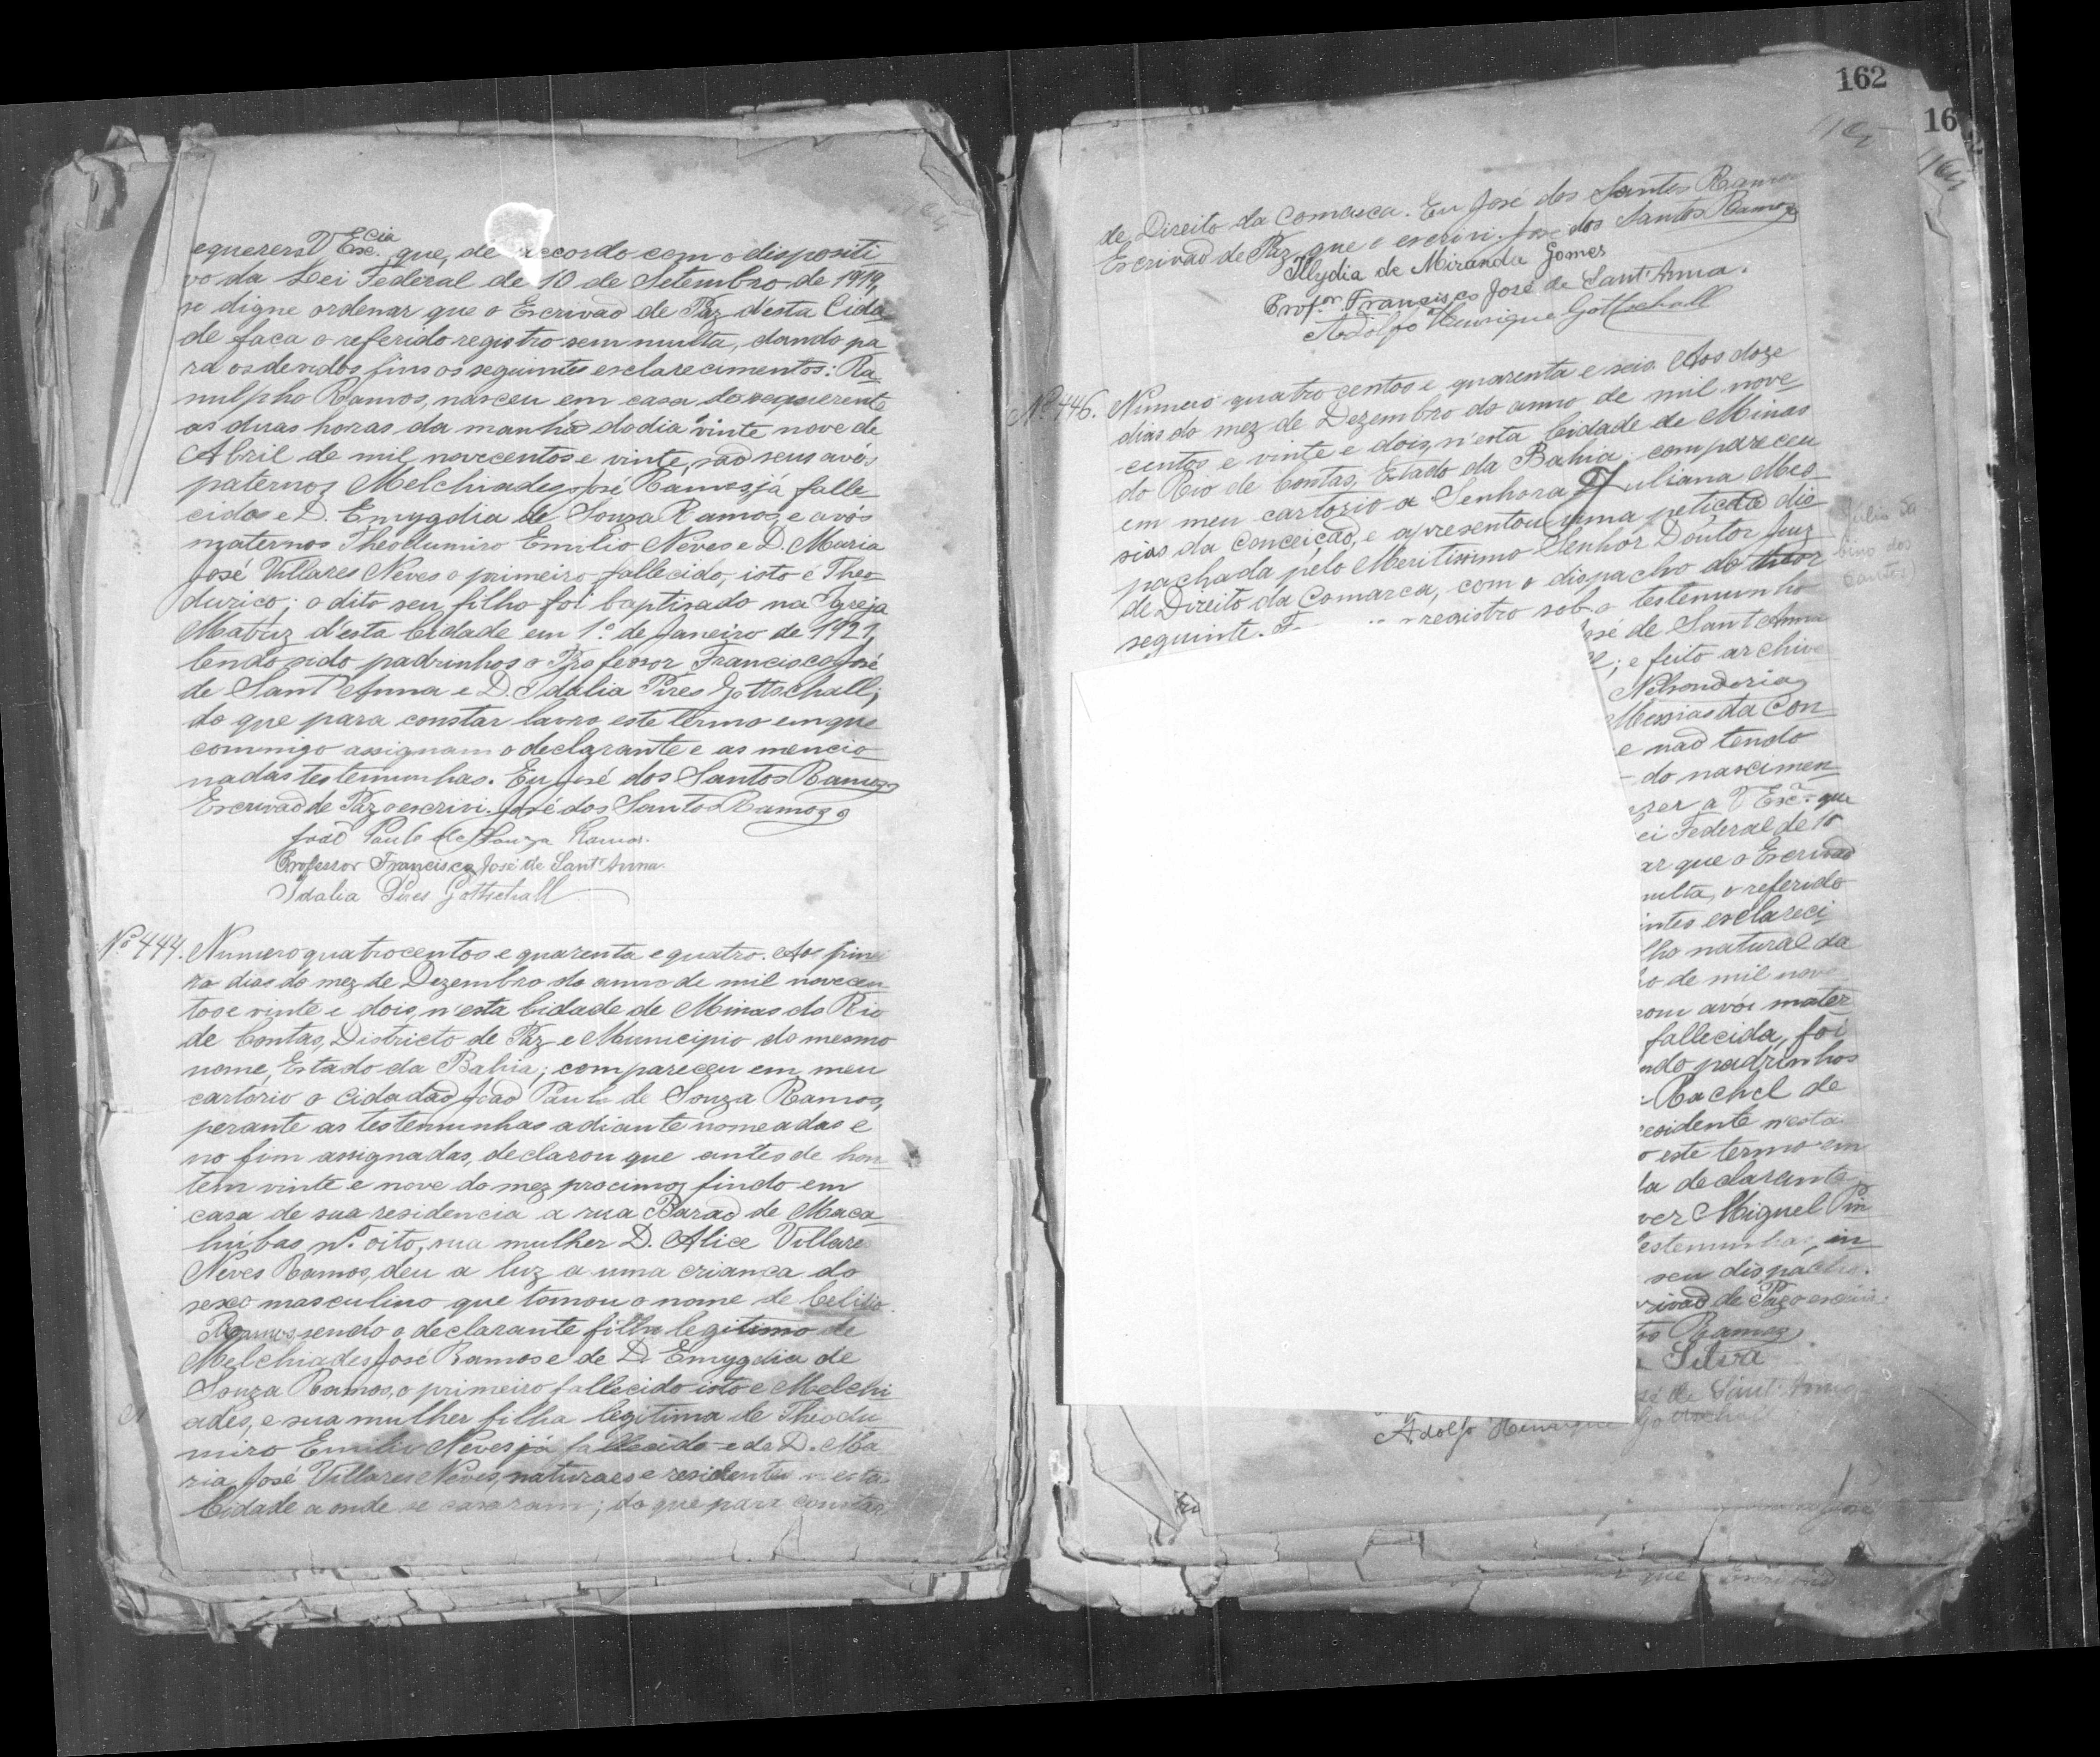 equerer a V Exc.cia que, de accordo com o dispositi
vo da Lei Federal de 10 de Setembro de 1919,
se digne ordenar que o Escrivaõ de Paz d'esta Cida
de faca o referido registro sem multa, dando pa
ra os devidos fins os seguintes esclarecimentos: Ra
nulpho Ramos, nasceu em casa do requerente
as duas horas da manhã do dia vinte nove de
Abril de mil novecentos e vinte, saõ seus avós
paternos Melchiades José Ramos já falle
cidos e D. Emygdia de Souza Ramos, e avós
maternos Theodumiro Emilio Neves e D. Maria
José Villares Neves o primeiro fallecido, isto é Theo
durico; o dito seu filho foi baptisado na Igreja
Matriz d'esta Cidade em 1º de Janeiro de 1921,
tendo sido padrinhos o Professor Francisco José
de Sant'Anna e D. Idalia Pires Gottschall;
do que para constar lavro este termo em que
comigo assignam o declarante e as mencio
nadas testemunhas. Eu José dos Santos Ramos
Escrivaõ de Paz o escrivi. José dos Santos Ramos
Joaõ Paulo de Souza Ramos.
Professor Francisco José de Sant'Anna.
Idalia Pires Gottschall
Nº 444. Numero quatrocentos e quarenta e quatro. Aos primei
ro dias do mez de Dezembro do anno de mil novecen
tos e vinte e dois, n'esta Cidade de Minas do Rio
de Contas, Districto de Paz e Municipio do mesmo
nome, Estado da Bahia; compareceu em meu
cartorio o cidadaõ Joaõ Paulo de Souza Ramos,
perante as testemunhas adiante nomeadas e
no fim assignadas, declarou que antes de hon
tem vinte e nove do mez procimos findo em
casa de sua residencia a rua Baraõ de Maca
hubas nº oito, sua mulher D. Alice Villares
Neves Ramos, deu a luz a uma criança do
sexo masculino que tomou o nome de
Ramos, sendo o declarante filho legitimo de
Melchiades José Ramos e de D. Emygdia de
Souza Ramos, o primeiro fallecido isto e Melchi
ades, e sua mulher filha legitima de Theodu
miro Emilio Neves já fallecido e de D. Ma
ria José Villares Neves, naturaes e residentes n'esta
Cidade a onde se casaram; do que para constar
162
16
de Direito da Comarca. Eu José dos Santos Ramos
Escrivaõ de Paz que o escrivi. José dos Santos Ramos
Illydia de Miranda Gomes
Prof.or Francisco José de Sant'Anna.
Adolfo Henrique Gottschall
Nº 446. Numero quatro centos e quarenta e seis. Aos doze
dias do mez de Dezembro do anno de mil nove
centos e vinte e dois, n'esta Cidade de Minas
do Rio de Contas, Estado da Bahia; compareceu
em meu cartorio a Senhora Juliana Mes
sias da Conceicaõ, e apresentou uma peticaõ dis
pachada pelo Meritissimo Senhor Doutor Juiz
de Direito da Comarca, com o dispacho do theor
seguinte. registro sob o testemunho
José de Sant'Anna
; e feito archive
Nelson de ria
Messias da Con
e naõ tendo
do nascimen
rer a V Exc.a que
ei Federal de 10
ar que o Escrivaõ
multa, o referido
intes esclareci
lho natural da
o de mil nove
com avós mater
fallecida, foi
ndo padrinhos
Rachel de
residente n'esta
o este termo em
la declarante
ver Miguel Pin
testemunhas, in
seu dispacho.
rivaõ de Paz o escrivi.
tos Ramos
Silva
sé de Sant'Anna
Adolfo Henrique Gottschall
Julio Sa
bino dos
Santos